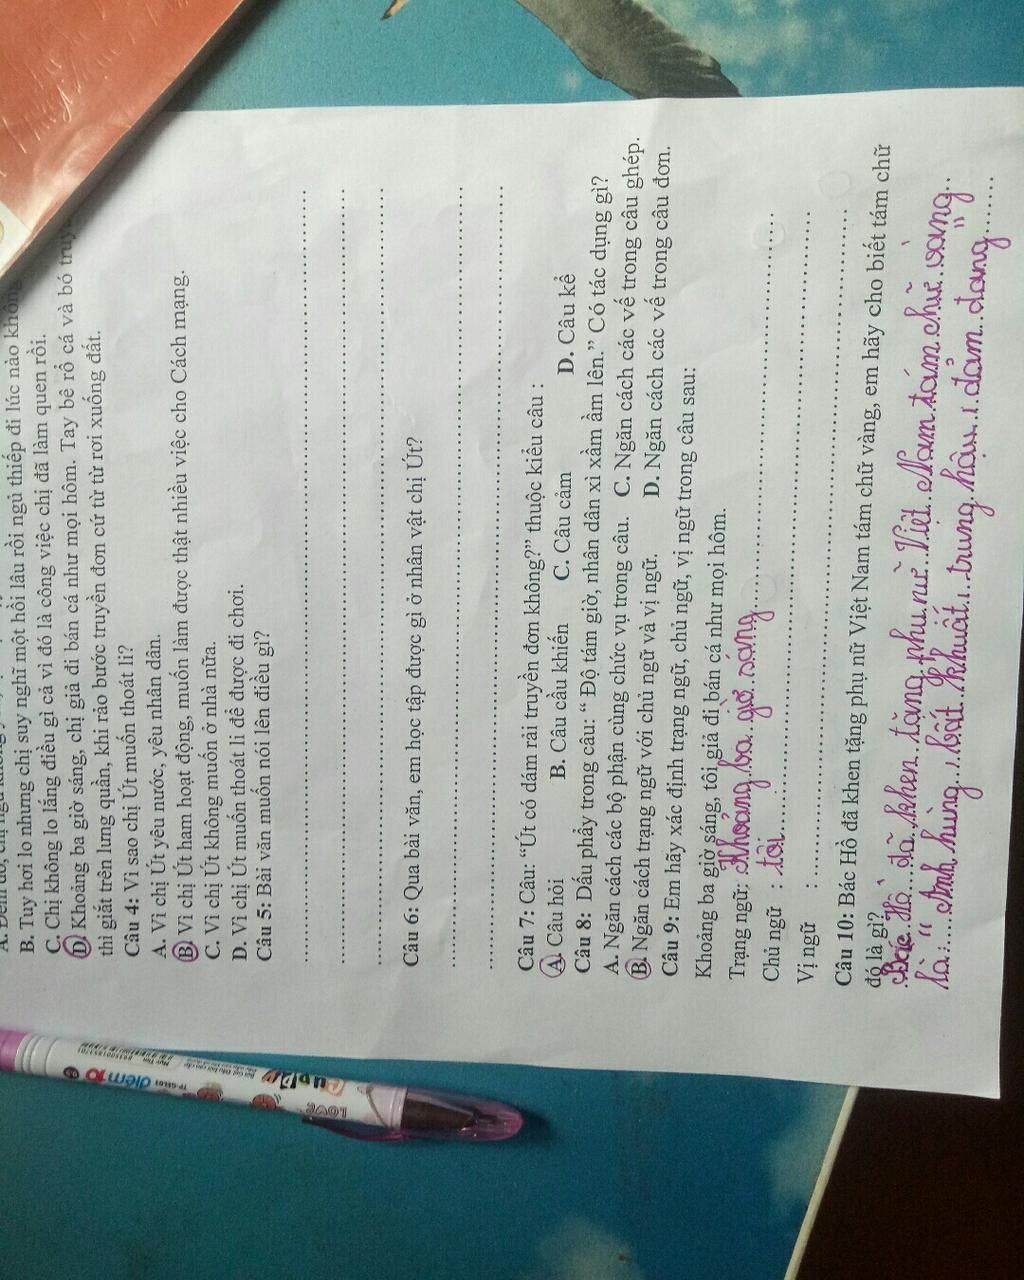 B. Tuy hơi lo nhưng chị suy nghĩ một hồi lâu rồi ngủ thiếp đi lúc nào không
C. Chị không lo lắng điều gì cả vì đó là công việc chị đã làm quen rồi.
D. Khoảng ba giờ sáng, chị giả đi bán cá như mọi hôm. Tay bê rổ cá và bó
thì giắt trên lưng quần, khi rảo bước truyền đơn cứ từ từ rơi xuống đất.
Câu 4: Vì sao chị Út muốn thoát li?
A. Vì chị Út yêu nước, yêu nhân dân.
B. Vì chị Út ham hoạt động, muốn làm được thật nhiều việc cho Cách mạng.
C. Vì chị Út không muốn ở nhà nữa.
D. Vì chị Út muốn thoát li để được đi chơi.
Câu 5: Bài văn muốn nói lên điều gì?
Câu 6: Qua bài văn, em học tập được gì ở nhân vật chị Út?
Câu 7: Câu: “Út có dám rải truyền đơn không?” thuộc kiểu câu :
A. Câu hỏi B. Câu cầu khiến C. Câu cảm D. Câu kể
Câu 8: Dấu phẩy trong câu: “ Độ tám giờ, nhân dân xì xầm ầm lên.” Có tác dụng gì?
A. Ngăn cách các bộ phận cùng chức vụ trong câu. C. Ngăn cách các vế trong câu ghép.
B. Ngăn cách trạng ngữ với chủ ngữ và vị ngữ. D. Ngăn cách các vế trong câu đơn.
Câu 9: Em hãy xác định trạng ngữ, chủ ngữ, vị ngữ trong câu sau:
Khoảng ba giờ sáng, tôi giả đi bán cá như mọi hôm.
Trạng ngữ: Khoảng ba giờ sáng
Chủ ngữ : tôi
Vị ngữ :
Câu 10: Bác Hồ đã khen tặng phụ nữ Việt Nam tám chữ vàng, em hãy cho biết tám chữ
đó là gì?
Bác Hồ đã khen tặng phụ nữ Việt Nam tám chữ vàng
là: " Anh hùng, bất khuất, trung hậu, đảm đang "
LOVE
điểm 10
TP-GEL01